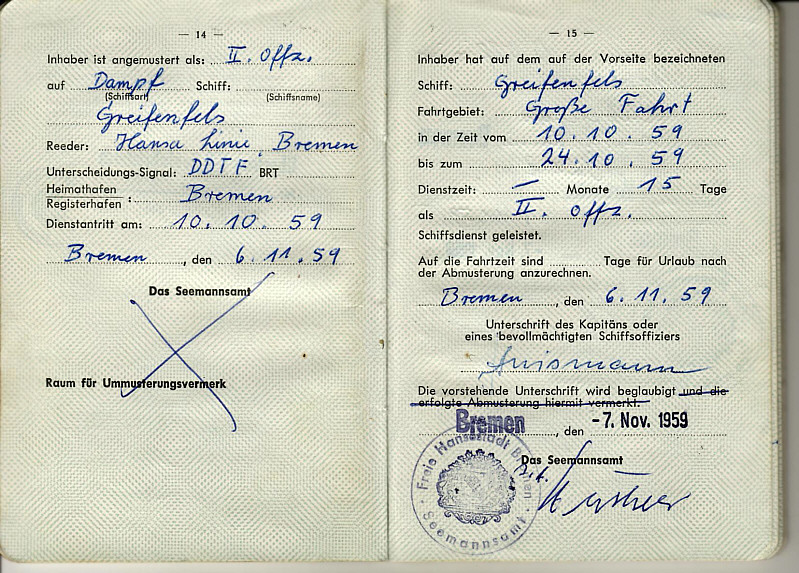 — 14 —
Inhaber ist angemustert als: II. Offz.
auf Dampf Schiff:
(Schiffsart) (Schiffsname)
Greifenfels
Reeder: Hansa Linie, Bremen
Unterscheidungs-Signal: DDTF BRT
Heimathafen
Registerhafen : Bremen
Dienstantritt am: 10. 10. 59
Bremen, den 6. 11. 59
Das Seemannsamt
Raum für Ummusterungsvermerk
— 15 —
Inhaber hat auf dem auf der Vorseite bezeichneten
Schiff: Greifenfels
Fahrtgebiet: Große Fahrt
in der Zeit vom 10. 10. 59
bis zum 24. 10. 59
Dienstzeit: — Monate 15 Tage
als II. Offz.
Schiffsdienst geleistet.
Auf die Fahrtzeit sind Tage für Urlaub nach
der Abmusterung anzurechnen.
Bremen, den 6. 11. 59
Unterschrift des Kapitäns oder
eines bevollmächtigten Schiffsoffiziers
Die vorstehende Unterschrift wird beglaubigt und die
erfolgte Abmusterung hiermit vermerkt.
Bremen, den -7. Nov. 1959
Das Seemannsamt
Freie Hansestadt Bremen
Seemannsamt